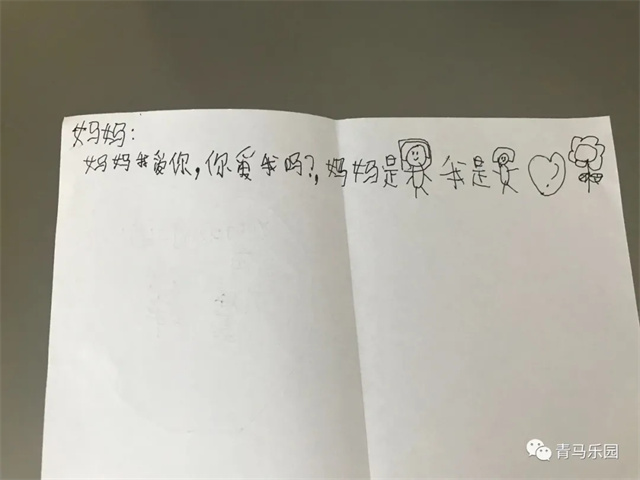 妈妈:
妈妈我爱你,你爱我吗?,妈妈是 我是
青马乐园